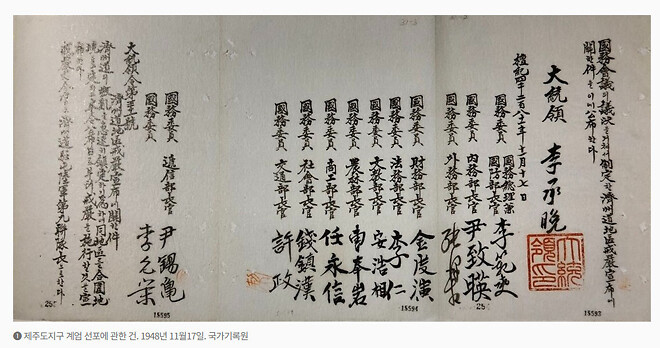 國務會議의 議決을 거쳐서 制定한 濟州道地區戒嚴宣布에
關한 件을 이에 公布한다
大統領 李承晩
大統領印
檀紀四千二百八十一年十一月十七日
國務委員 國務總理兼國防部長官 李範奭
國務委員 內務部長官 尹致暎
國務委員 外務部長官
國務委員 財務部長官 金度演
國務委員 法務部長官 李仁
國務委員 文敎部長官 安浩相
國務委員 農林部長官 曺奉岩
國務委員 商工部長官 任永信
國務委員 社會部長官 錢鎭漢
國務委員 交通部長官 許政
國務委員 遞信部長官 尹錫龜
國務委員 李允榮
大統領令第三十一號
濟州道地區戒嚴宣布에 關한 件
濟州道의 叛亂을 急速히 鎭定하기 爲하여 同地區를 合圍地
境으로 定하고 本令公布日로부터 戒嚴을 施行할 것을 宣
布한다
戒嚴司令官은 濟州道駐屯陸軍第九聯隊長으로 한다
15593
15594
15595
❶ 제주도지구 계엄 선포에 관한 건. 1948년 11월17일. 국가기록원